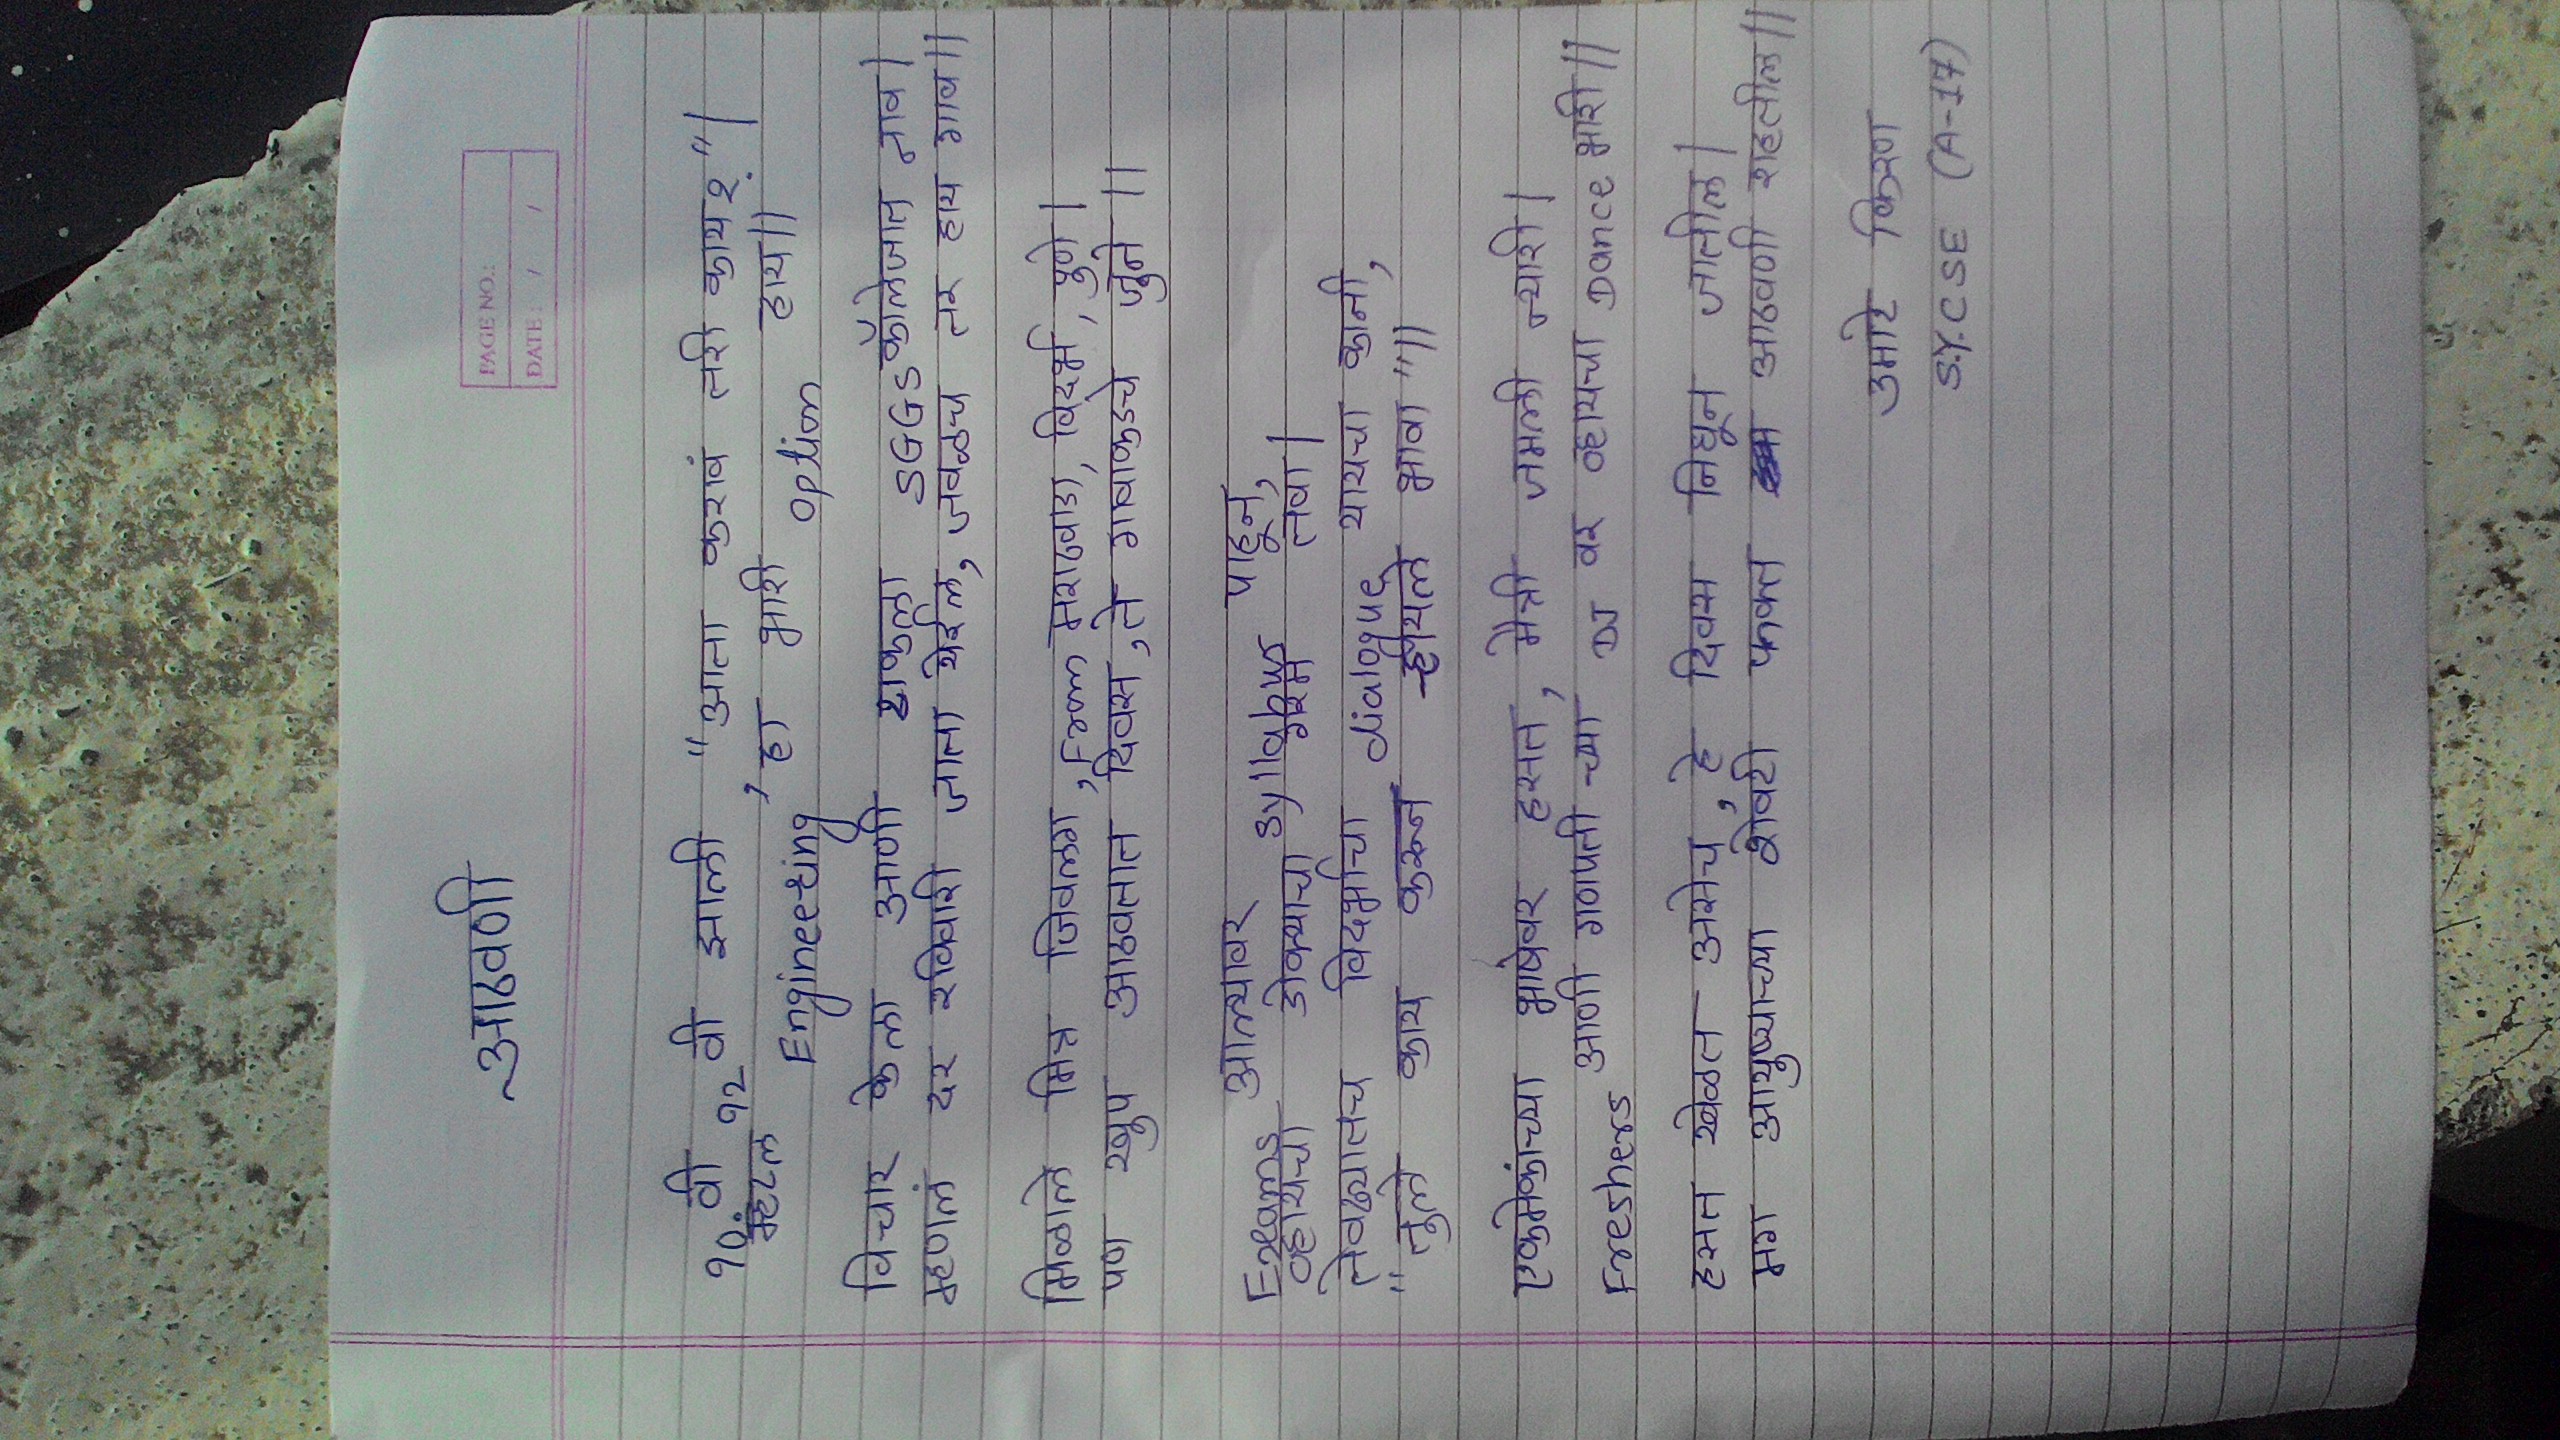 आठवणी
PAGE NO.:
DATE: / /
१०वी १२वी झाली "आता करावं तरी काय?"|
म्हंटल Engineering, हा भारी option हाय||
विचार केला आणी टाकला SGGS कॉलेजात नाव|
म्हणलं दर रविवारी जाता येईल, जवळच तर हाय गाव||
मिळाले मित्र जिवलग, From मराठवाडा, विदर्भ, पुणे|
पण खुप आठवतात दिवस, ते गावाकडचे जुने||
Exams आल्यावर syllabus पाहून,
व्हायचा डोक्याचा गरम तवा|
तेवढ्यातच विदर्भाचा dialogue यायचा कानी,
"तुले काय करून ऱ्हायले भावा"||
एकमेकांच्या भाषेवर हसत, मैत्री जमली न्यारी|
Freshers आणी गणपती च्या DJ वर व्हायचा Dance भारी||
हसत खेळत असेच, हे दिवस निघून जातील|
मग आयुष्याच्या शेवटी फक्त आठवणी राहतील||
उमाटे किरण
S.Y.CSE (A-17)